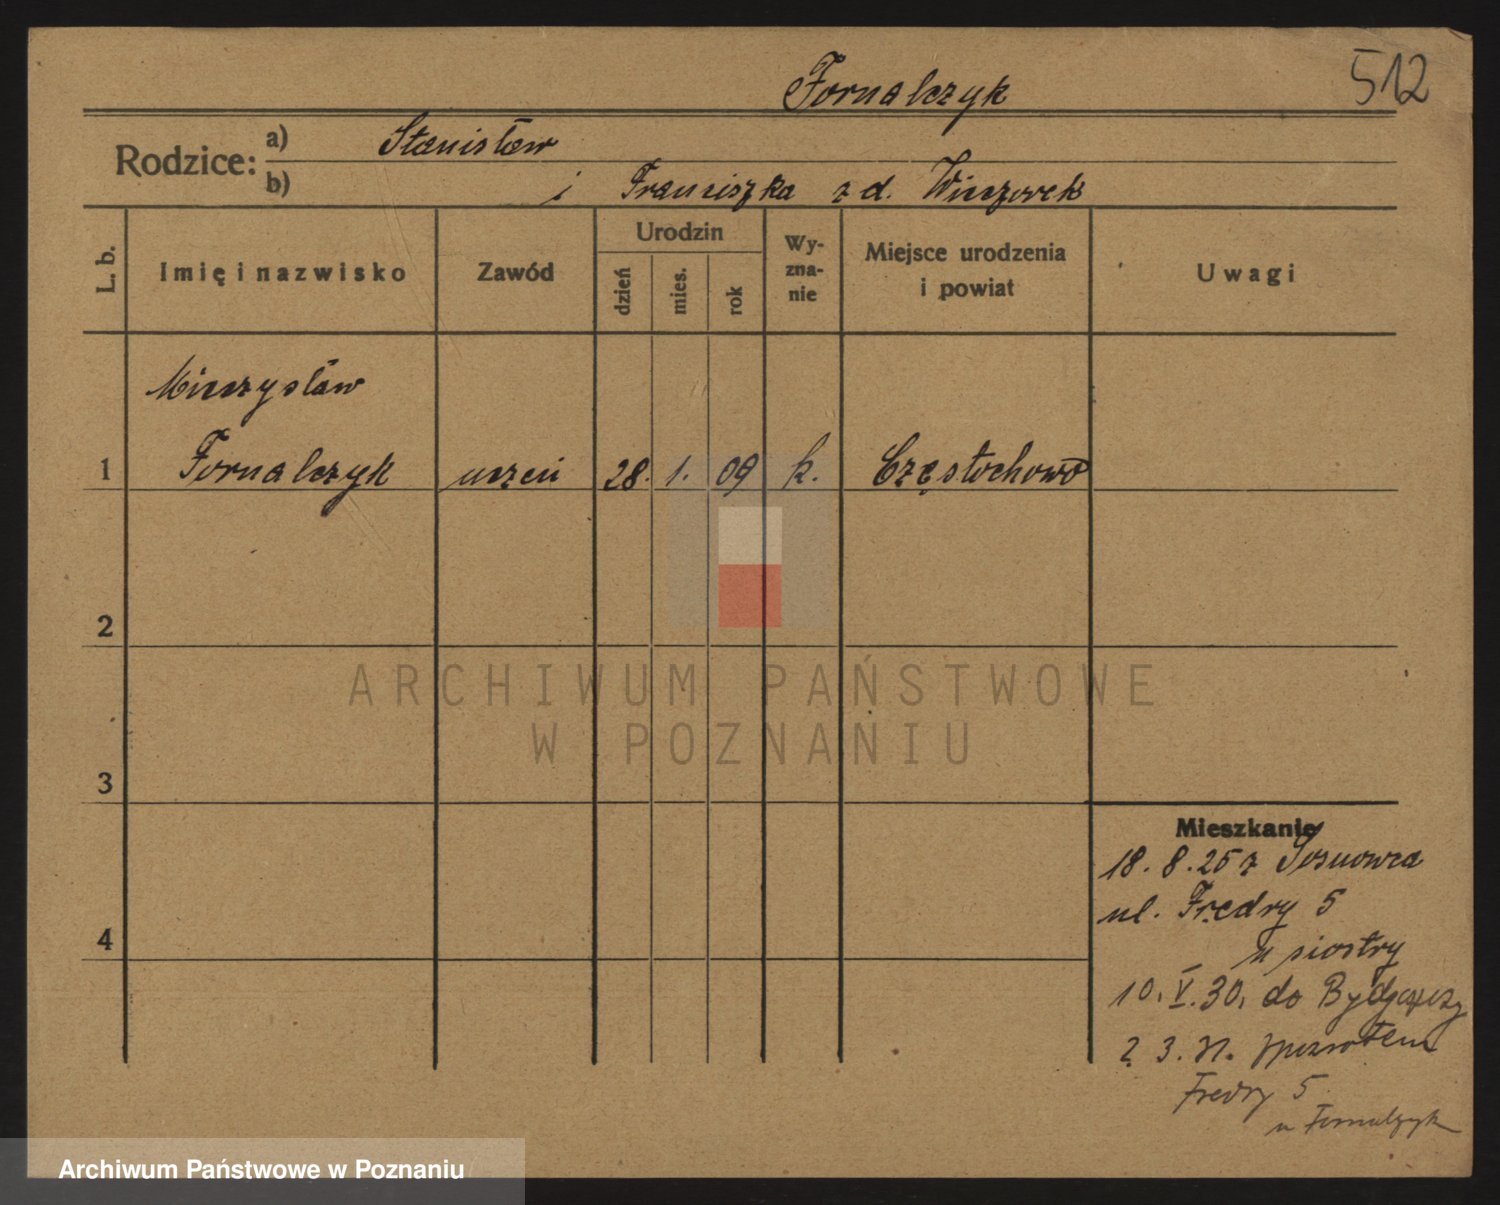 Fornalczyk
512
Rodzice:
a) Stanisław
b) i Franciszka z d. Wieczorek
L. b.
Imię i nazwisko
Zawód
Urodzin
dzień
mies.
rok
Wy-
zna-
nie
Miejsce urodzenia
i powiat
Uwagi
Mieczysław
1 Fornalczyk uczeń 28. 1. 09 k. Częstochowa
2
3
4
Mieszkanie
18. 8. 25 z Sosnowca
ul. Fredry 5
u siostry
10. V. 30. do Bydgoszczy
2. 3. 31. zpowrotem
Fredry 5
u Fornalczyk
ARCHIWUM PAŃSTWOWE
W POZNANIU
Archiwum Państwowe w Poznaniu